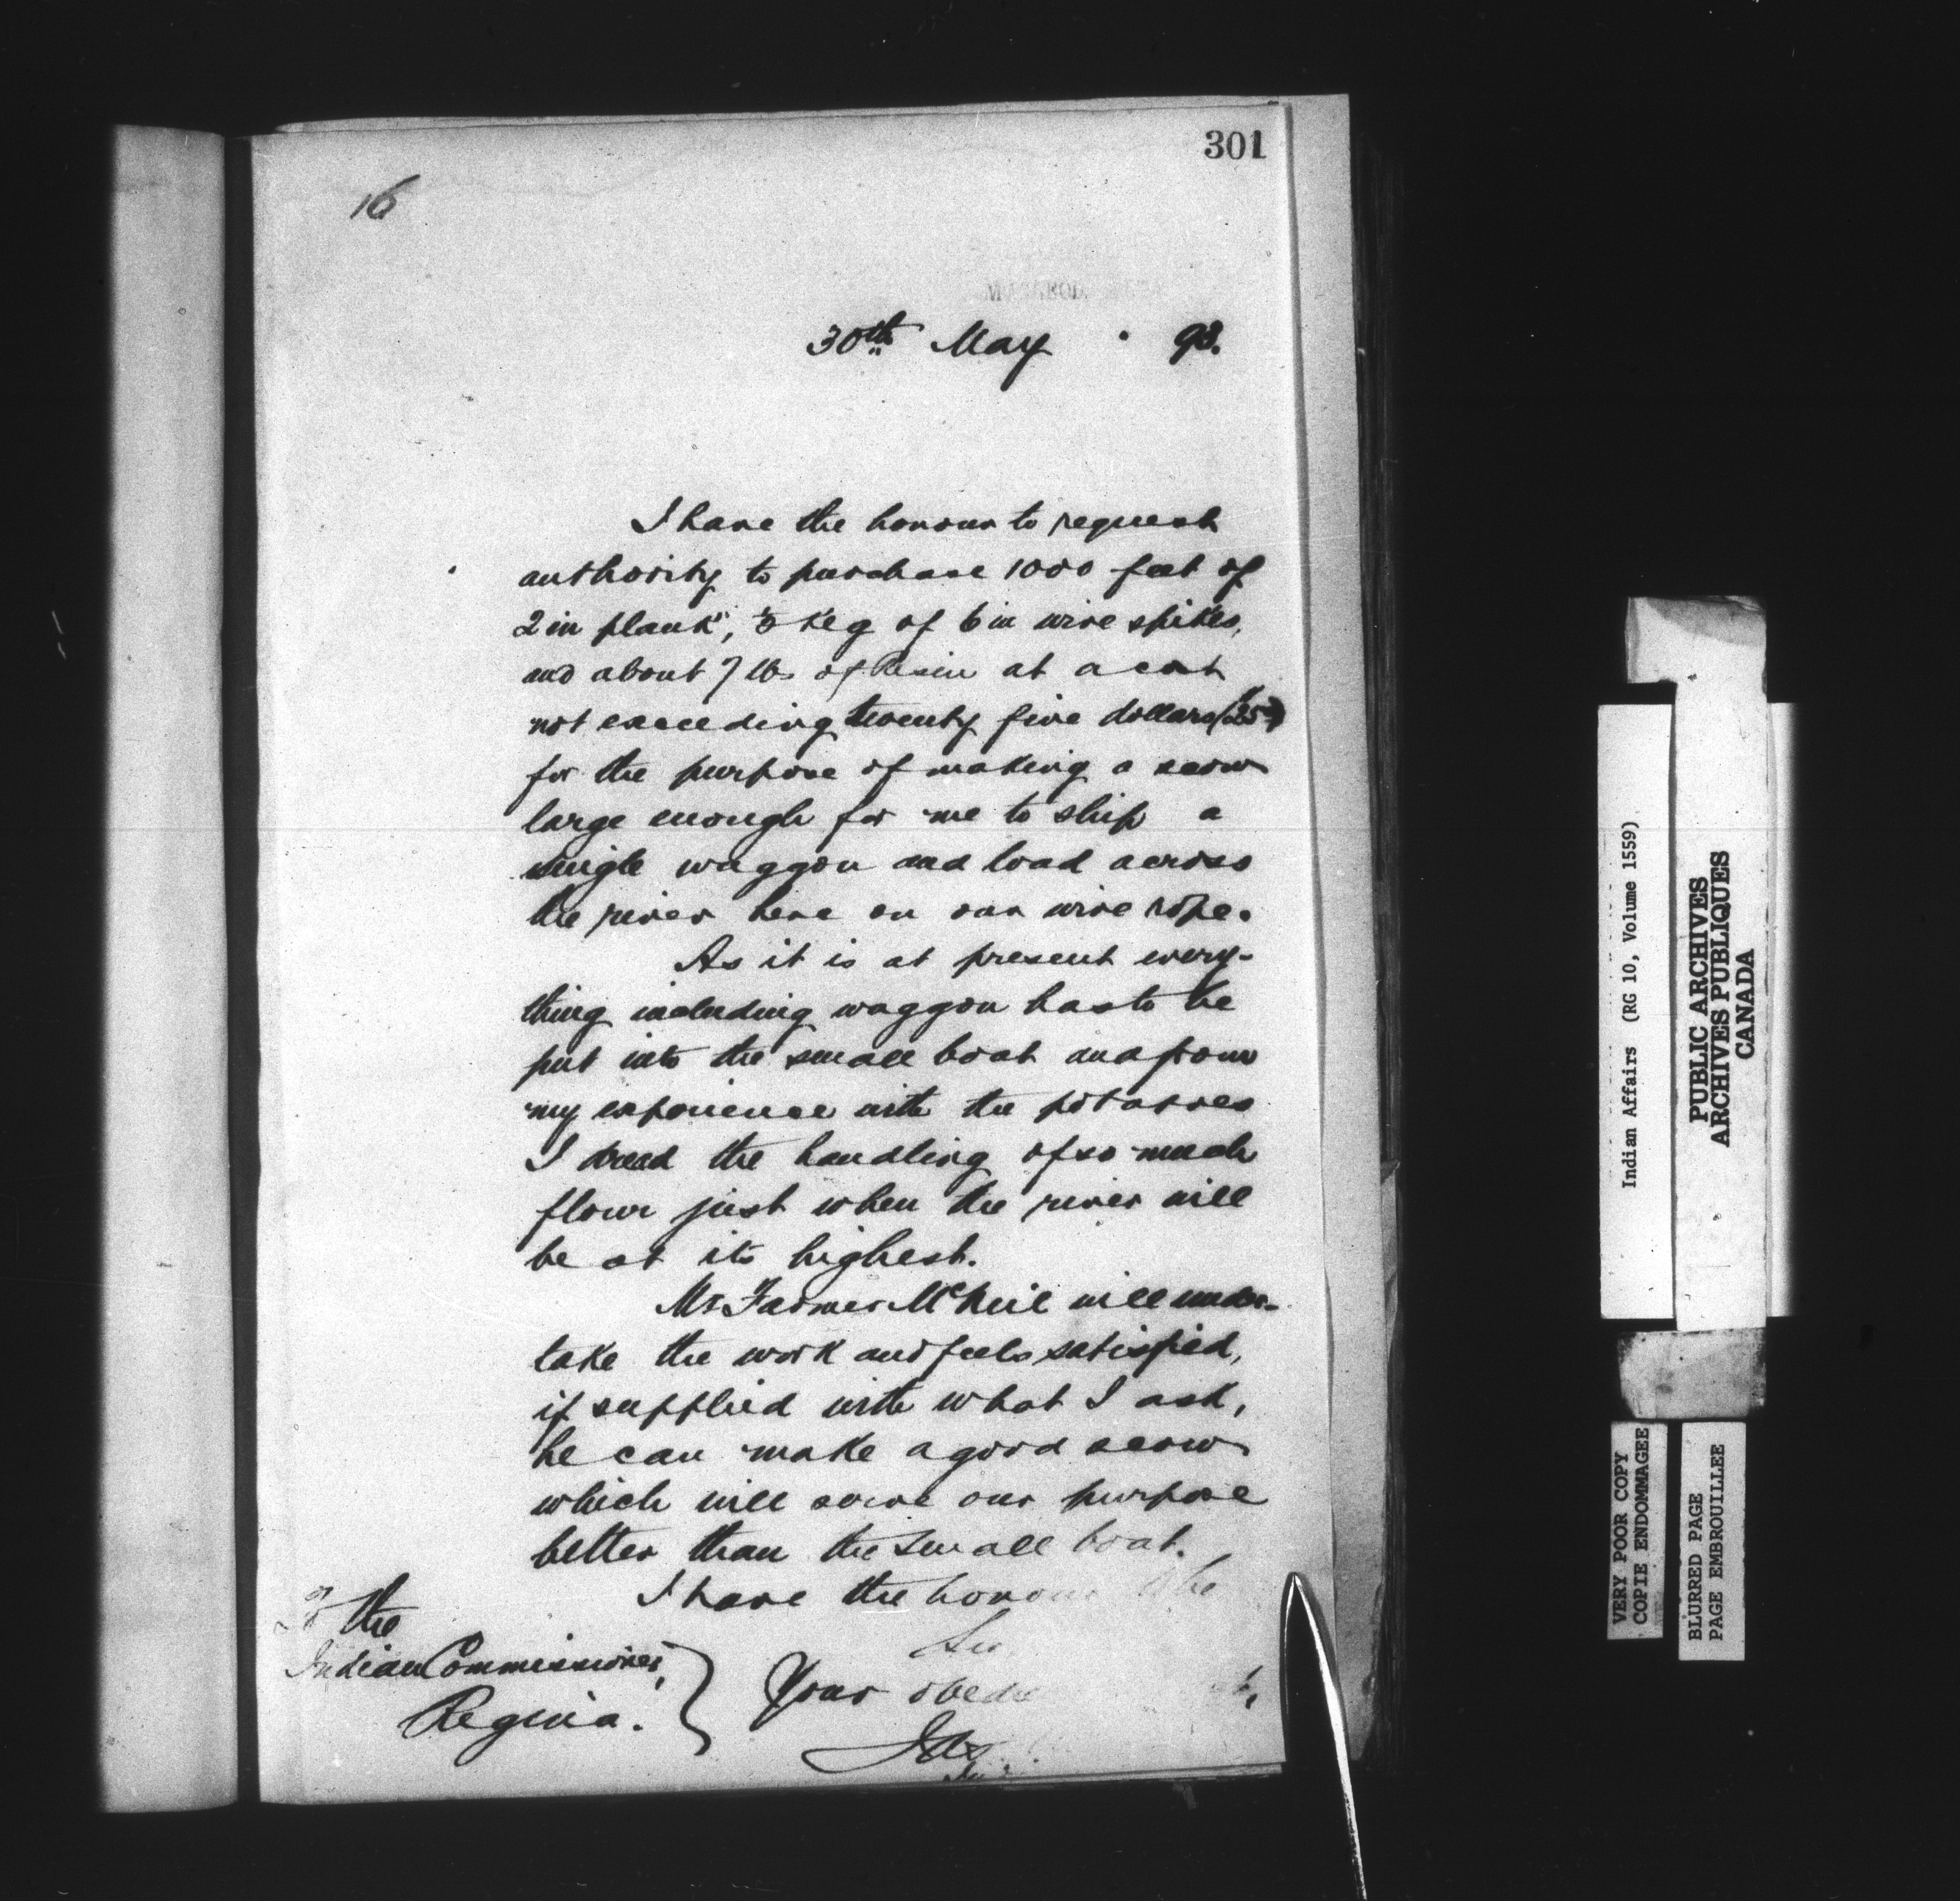 301
16
30th May 98.
I have the honour to request
authority to purchase 1000 feet of
2 in plank, keg of 6 in wire spikes,
and about 7 lbs of Resin at a cost
not exceeding twenty five dollars ($25)
for the purpose of making a scow
large enough for me to ship a
single waggon and load across
the river here on our wire rope.
As it is at present every-
thing including waggon has to be
put into the small boat and from
my experience with the potatoes
I dread the handling of so much
flour just when the river will
be at its highest.
Mr Farmer McNeil will under-
take the work and feels satisfied,
if supplied with what I ask,
he can make a good scow
which will serve our purpose
better than the small boat.
I have the honour be
Sir
Your obed
To the
Indian Commissioner,
Regina.
Indian Affairs (RG 10, Volume 1559)
PUBLIC ARCHIVES
ARCHIVES PUBLIQUES
CANADA
VERY POOR COPY
COPIE ENDOMMAGEE
BLURRED PAGE
PAGE EMBROUILLEE